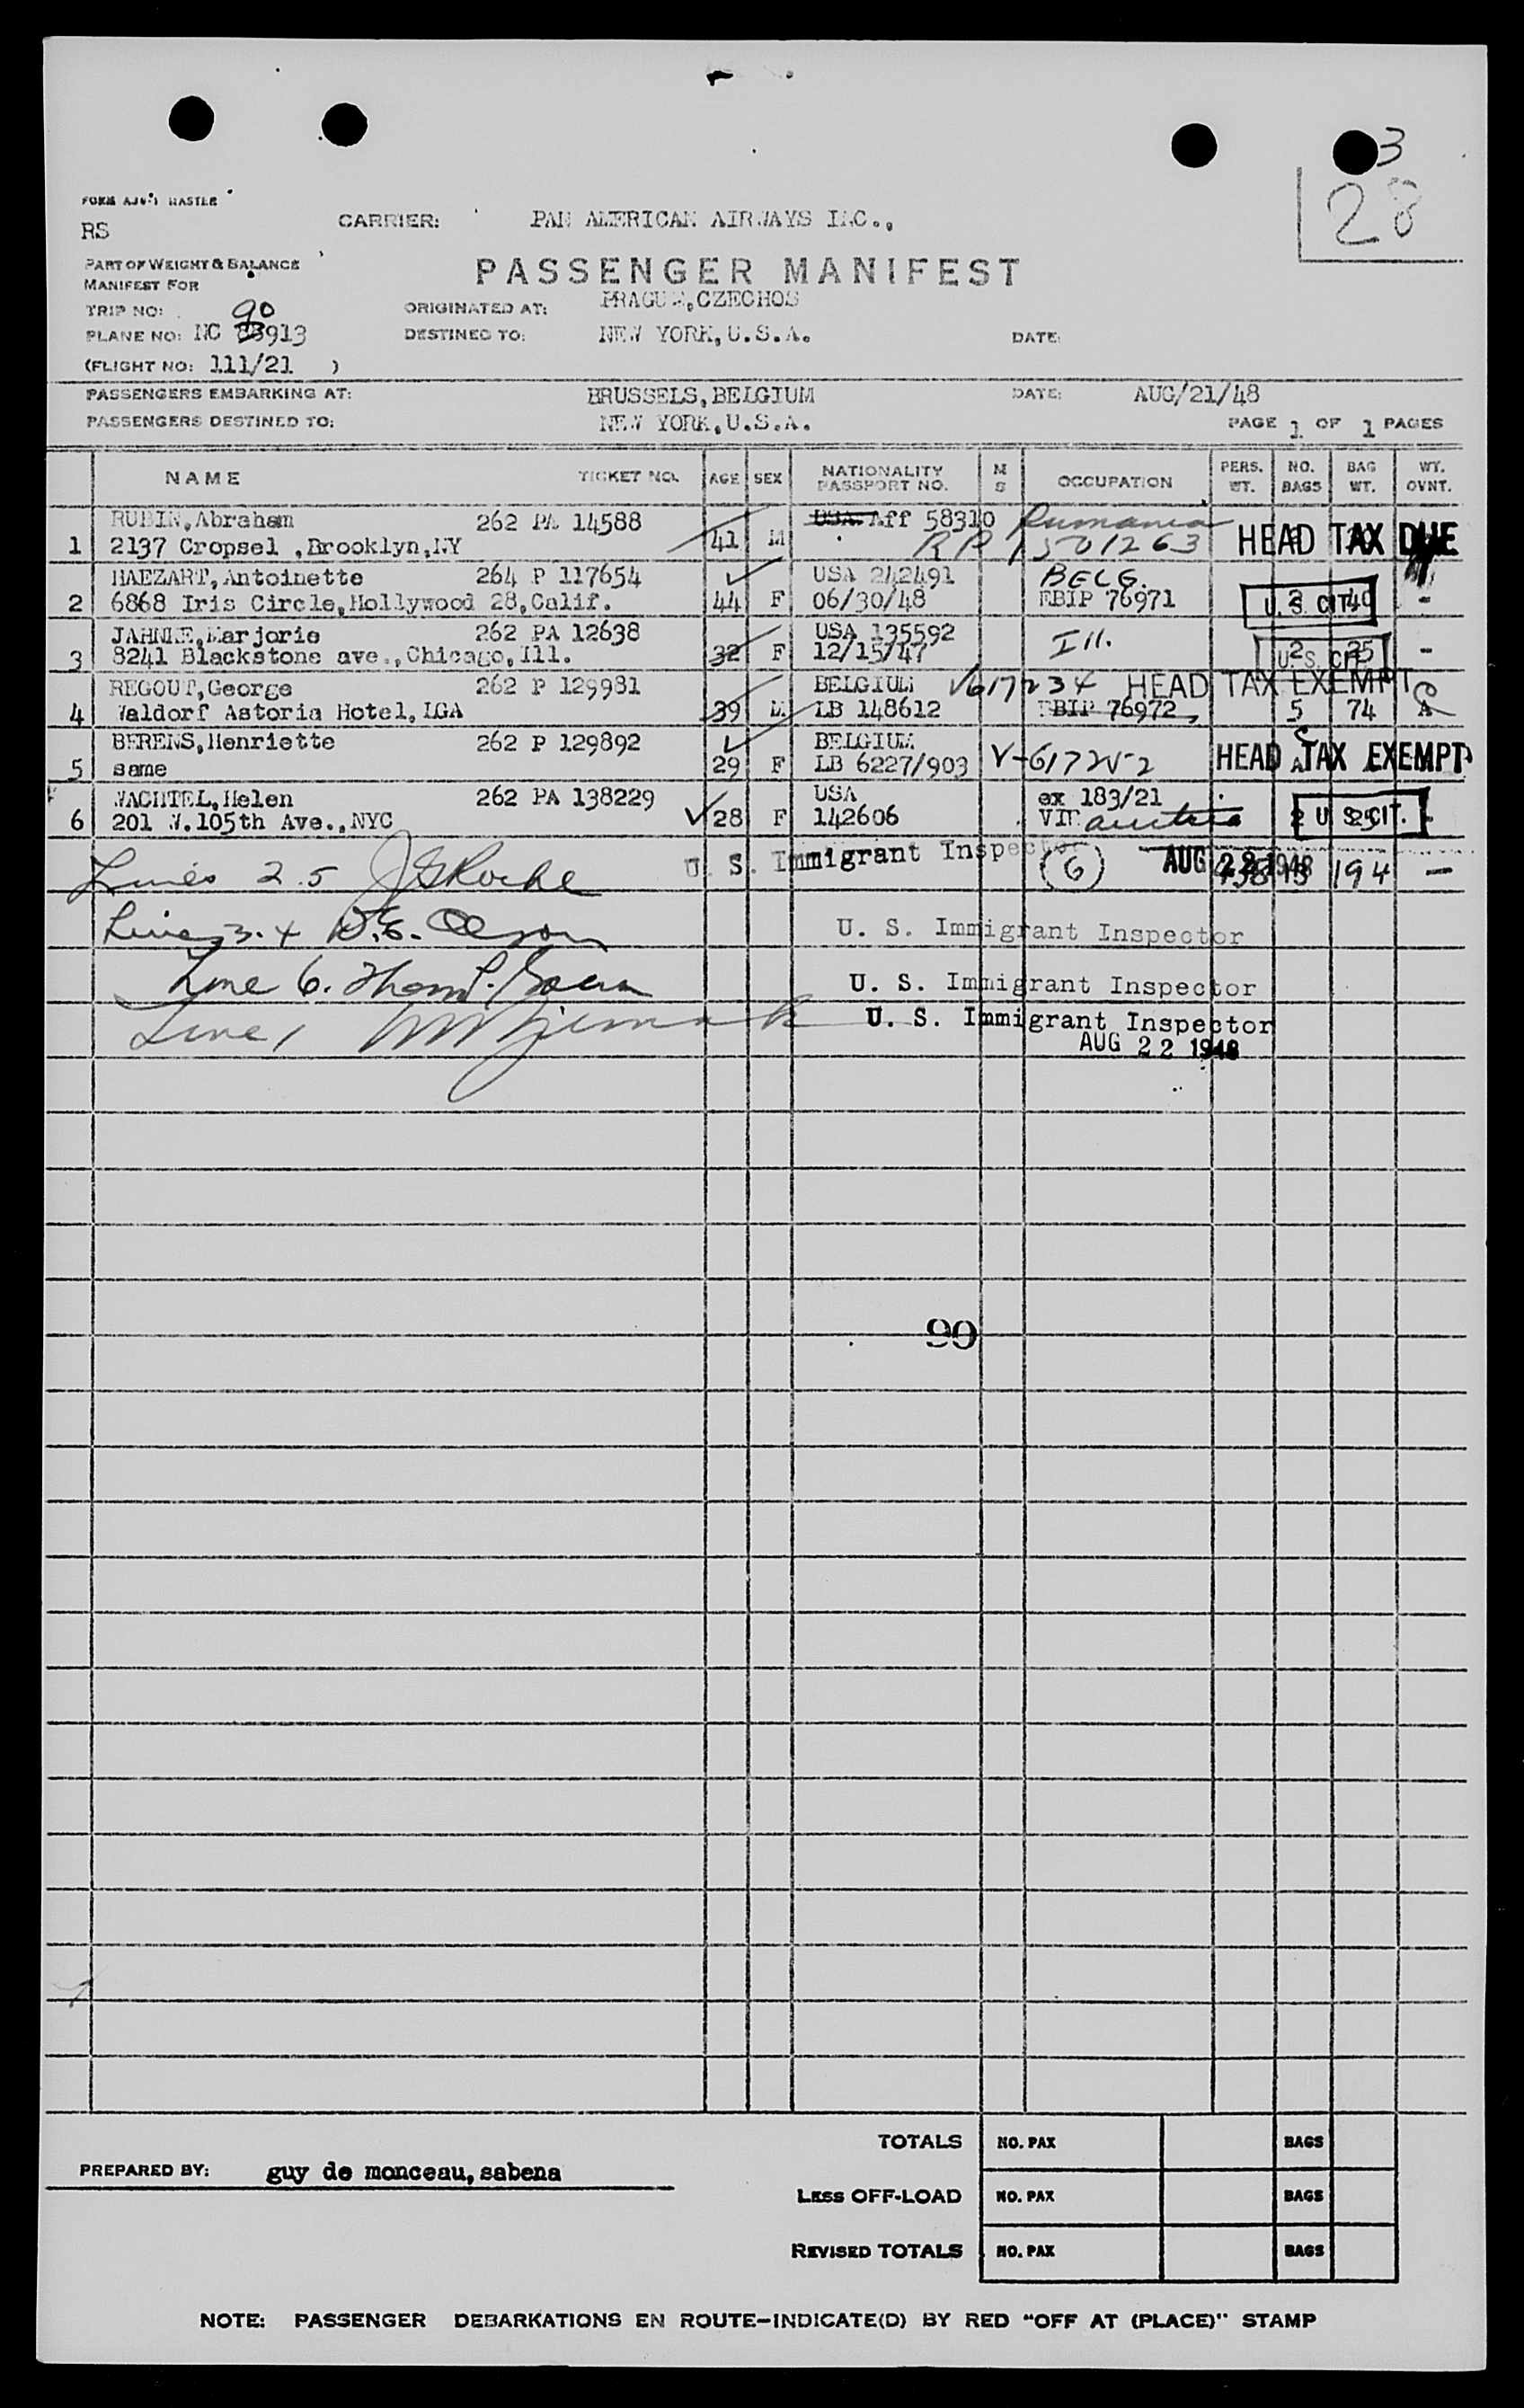 3
28
RS
CARRIER: PAN AMERICAN AIRWAYS INC.,
PART OF WEIGHT & BALANCE
MANIFEST FOR
PASSENGER MANIFEST
TRIP NO: 90
ORIGINATED AT: PRAGUE,CZECHOS
PLANE NO: NC 3913
DESTINED TO: NEW YORK,U.S.A. DATE:
(FLIGHT NO: 111/21 )
PASSENGERS EMBARKING AT: BRUSSELS,BELGIUM DATE: AUG/21/48
PASSENGERS DESTINED TO: NEW YORK,U.S.A. PAGE 1 OF 1 PAGES
NAME TICKET NO. AGE SEX NATIONALITY PASSPORT NO. M S OCCUPATION PERS. WT. NO. BAGS BAG WT. WT. OVNT.
RUBIN,Abraham 262 PA 14588 USA Aff 58310 Rumania
1 2137 Cropsel ,Brooklyn,NY 41 M RP 1501263 HEAD TAX DUE
HAEZART,Antoinette 264 P 117654 USA 242491 BELG.
2 6868 Iris Circle,Hollywood 28,Calif. 44 F 06/30/48 EBIP 76971 U. S. CIT. 40 -
JAHNKE,Marjorie 262 PA 12638 USA 135592 Ill.
3 8241 Blackstone ave.,Chicago,Ill. 32 F 12/15/47 U. S. CIT. 2 25 -
REGOUT,George 262 P 129981 BELGIUM V617234 HEAD TAX EXEMPT
4 Waldorf Astoria Hotel,LGA 39 M LB 148612 EBIP 76972 5 74 A
BERENS,Henriette 262 P 129892 BELGIUM
5 same 29 F LB 6227/903 V-617252 HEAD TAX EXEMPT
WACHTEL,Helen 262 PA 138229 USA ex 183/21
6 201 W.105th Ave.,NYC 28 F 142606 VIT austria 2 U. S. CIT.
Lines 2.5 U. S. Immigrant Inspector (6) AUG 22 1948 194 -
Lines 3.4 U. S. Immigrant Inspector
Line 6. U. S. Immigrant Inspector
Line 1 U. S. Immigrant Inspector
AUG 22 1948
90
TOTALS NO. PAX BAGS
PREPARED BY: guy de monceau,sabena
LESS OFF-LOAD NO. PAX BAGS
REVISED TOTALS NO. PAX BAGS
NOTE: PASSENGER DEBARKATIONS EN ROUTE-INDICATE(D) BY RED "OFF AT (PLACE)" STAMP